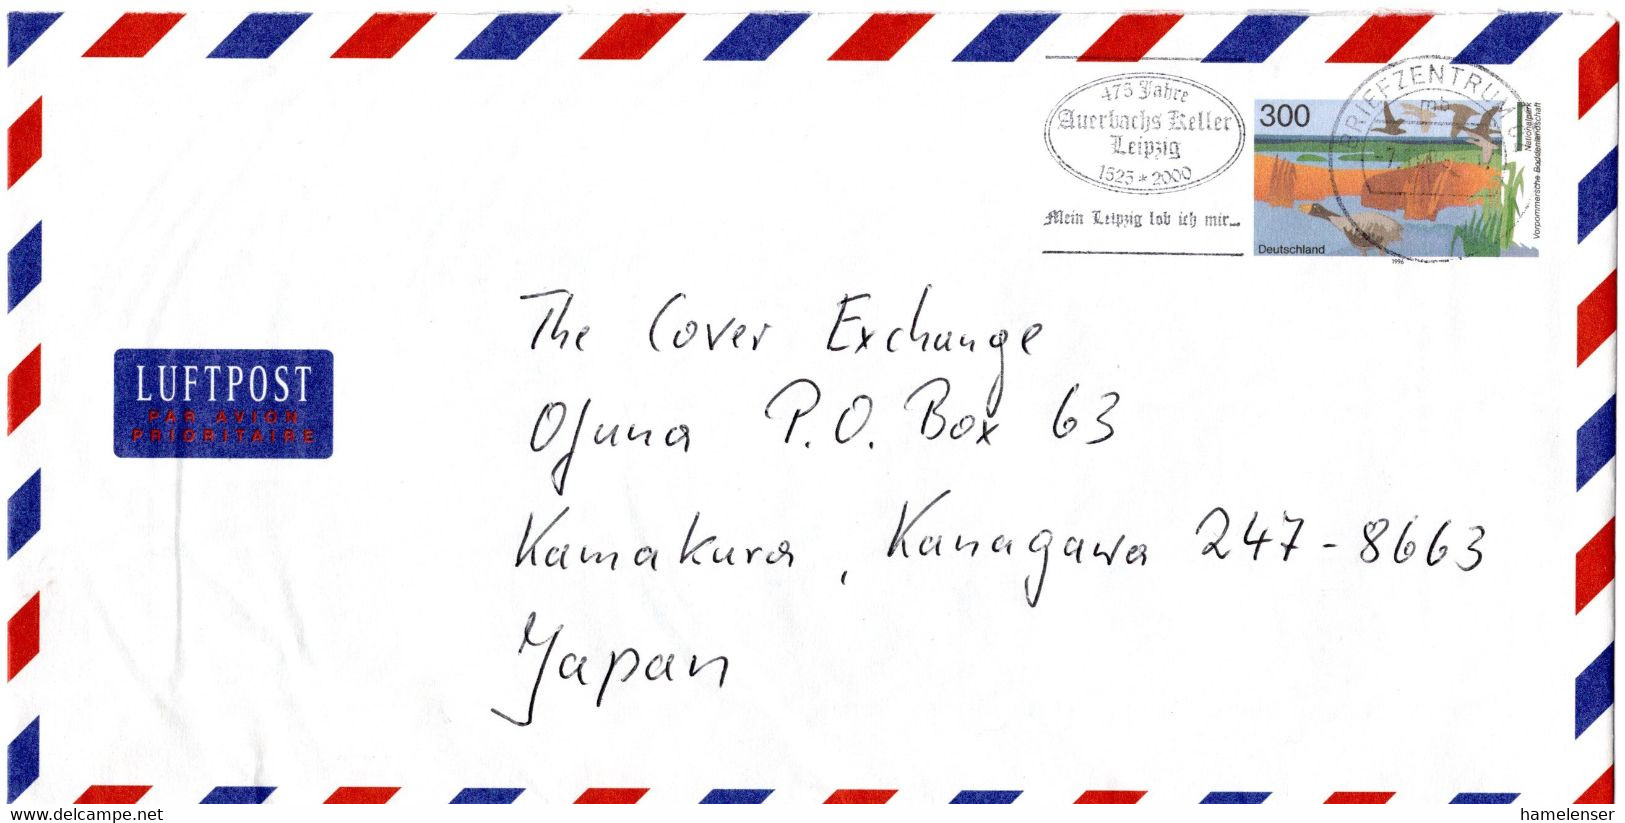 475 Jahre
Auerbachs Keller
Leipzig
1525 * 2000
Mein Leipzig lob ich mir...
BRIEFZENTRUM
mb
300
Nationalpark
Vorpommersche Boddenlandschaft
Deutschland
1996
LUFTPOST
PAR AVION
PRIORITAIRE
The Cover Exchange
Ofuna P.O. Box 63
Kamakura, Kanagawa 247-8663
Japan
delcampe.net
hamelenser